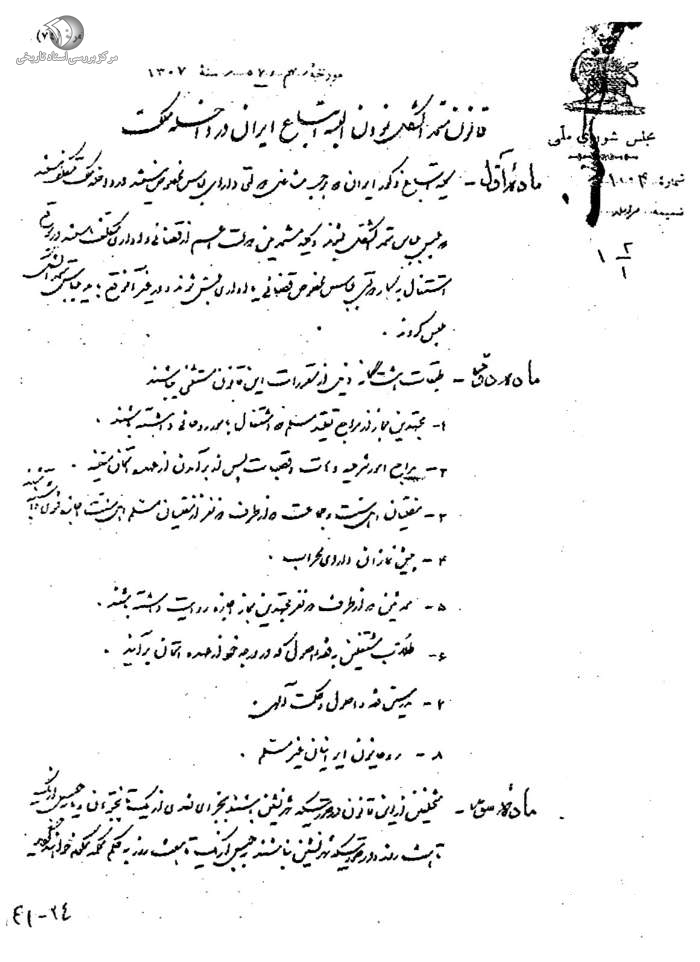 مرکز بررسی اسناد تاریخی
مورخهٔ سنهٔ ۱۳۰۷
مجلس شورای ملی
نمرهٔ ۱۰۰۴
ضمیمه
۲
۱ ۱
قانون متحدالشکل نمودن البسه اتباع ایران در داخله مملکت
مادهٔ اول - کلیه اتباع ذکور ایران که بر حسب مشاغل دولتی دارای لباس مخصوص نیستند در داخله مملکت مکلف هستند
که ملبس بلباس متحدالشکل بشوند و کلیه مستخدمین دولت اعم از قضائی و اداری مکلف هستند در موقع
اشتغال بکار دولتی بلباس مخصوص قضائی یا اداری ملبس شوند و در غیر آن موقع باید بلباس متحدالشکل
ملبس گردند .
مادهٔ دوم - طبقات هشت‌گانه ذیل از مقررات این قانون مستثنی میباشند
۱- مجتهدین مجاز از مراجع تقلید مسلم که اشتغال بامور روحانی داشته باشند .
۲- مراجع امور شرعیه دهات و قصبات پس از برآمدن از عهده امتحان معینه .
۳- مفتیان اهل سنت و جماعت که از طرف دو نفر از مفتیان مسلم اهل سنت اجازه فتوی داشته باشند
۴- پیش نمازان دارای محراب .
۵- محدثین که از طرف دو نفر مجتهدین مجاز اجازه روایت داشته باشند .
۶- طلاب مشتغلین بفقه و اصول که در درجه خود از عهده امتحان برآیند .
۷- مدرسین فقه و اصول و حکمت الهی
۸- روحانیون ایرانیان غیر مسلم .
مادهٔ سوم - متخلفین از این قانون در صورتیکه شهرنشین باشند بجزای نقدی از یک تا پنج تومان و یا بحبس از یک
تا هفت روز و در صورتیکه شهرنشین نباشند بحبس از یک تا هفت روز به حکم محکمه محکوم خواهند گردید
۴۱-۲۴